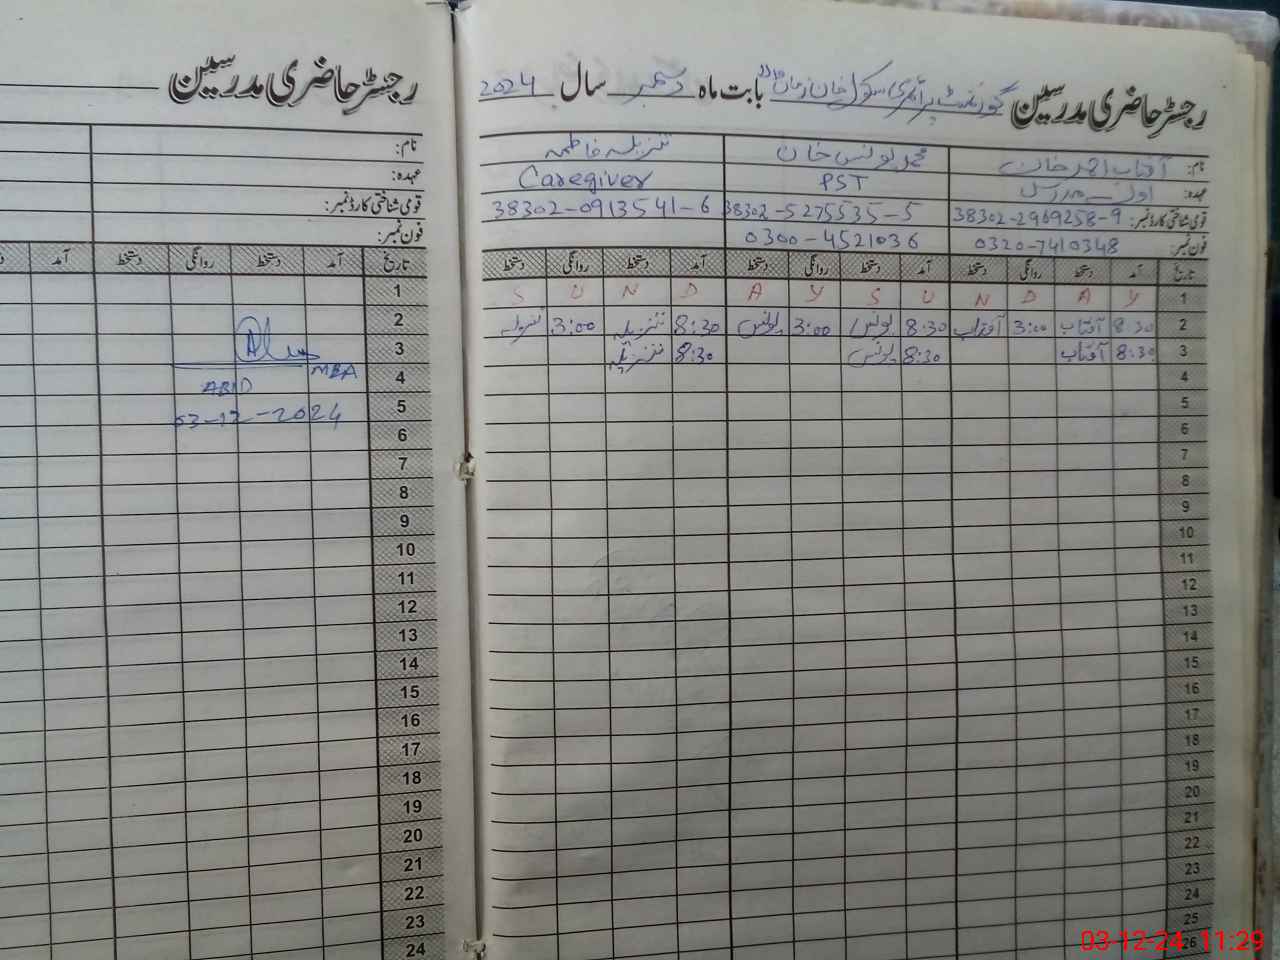 رجسٹر حاضری مدرسین گورنمنٹ پرائمری سکول خان زمان بابت ماہ دسمبر سال 2024
نام: آفتاب احمد خان محمد یونس خان تنزیلہ فاطمہ
عہدہ: اول مدرس PST Caregiver
قومی شناختی کارڈ نمبر: 38302-2969258-9 38302-5275535-5 38302-0913541-6
فون نمبر: 0320-7410348 0300-4521036
تاریخ آمد دستخط روانگی دستخط آمد دستخط روانگی دستخط آمد دستخط روانگی دستخط
1 S U N D A Y S U N D A Y
2 8:30 آفتاب 3:00 آفتاب 8:30 یونس 3:00 یونس 8:30 تنزیلہ 3:00 تنزیلہ
3 8:30 آفتاب 8:30 یونس 8:30 تنزیلہ
4
5
6
7
8
9
10
11
12
13
14
15
16
17
18
19
20
21
22
23
24
25
26
رجسٹر حاضری مدرسین
نام:
عہدہ:
قومی شناختی کارڈ نمبر:
فون نمبر:
تاریخ آمد دستخط روانگی دستخط آمد
1
2
3
4
5
6
7
8
9
10
11
12
13
14
15
16
17
18
19
20
21
22
23
24
MEA
ABID
03-12-2024
03-12-24 11:29